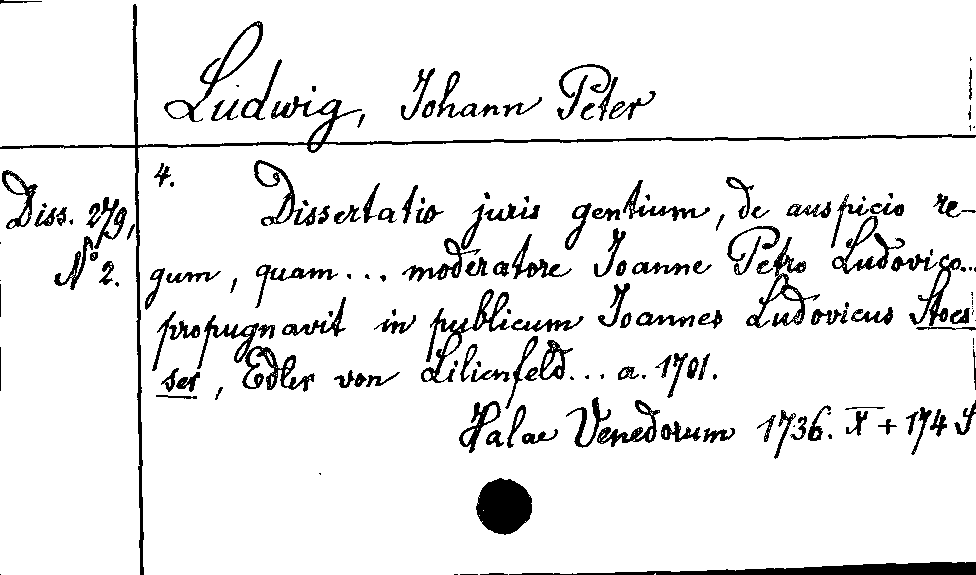 Ludwig, Johann Peter
4.
Diss. 279,
No 2.
Dissertatio juris gentium, de auspicio re-
gum, quam... moderatore Joanne Petro Ludovico...
propugnavit in publicum Joannes Ludovicus Stoes
ser, Edler von Lilienfeld... a. 1701.
Halae Venedorum 1736. X + 174 S